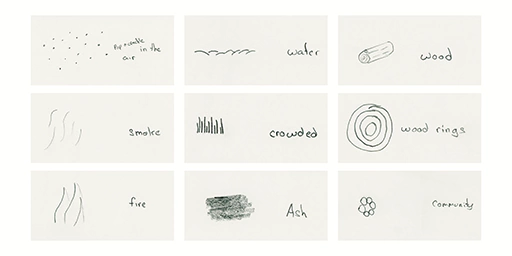 in the
air
water
wood
smoke
crowded
wood rings
fire
Ash
Community